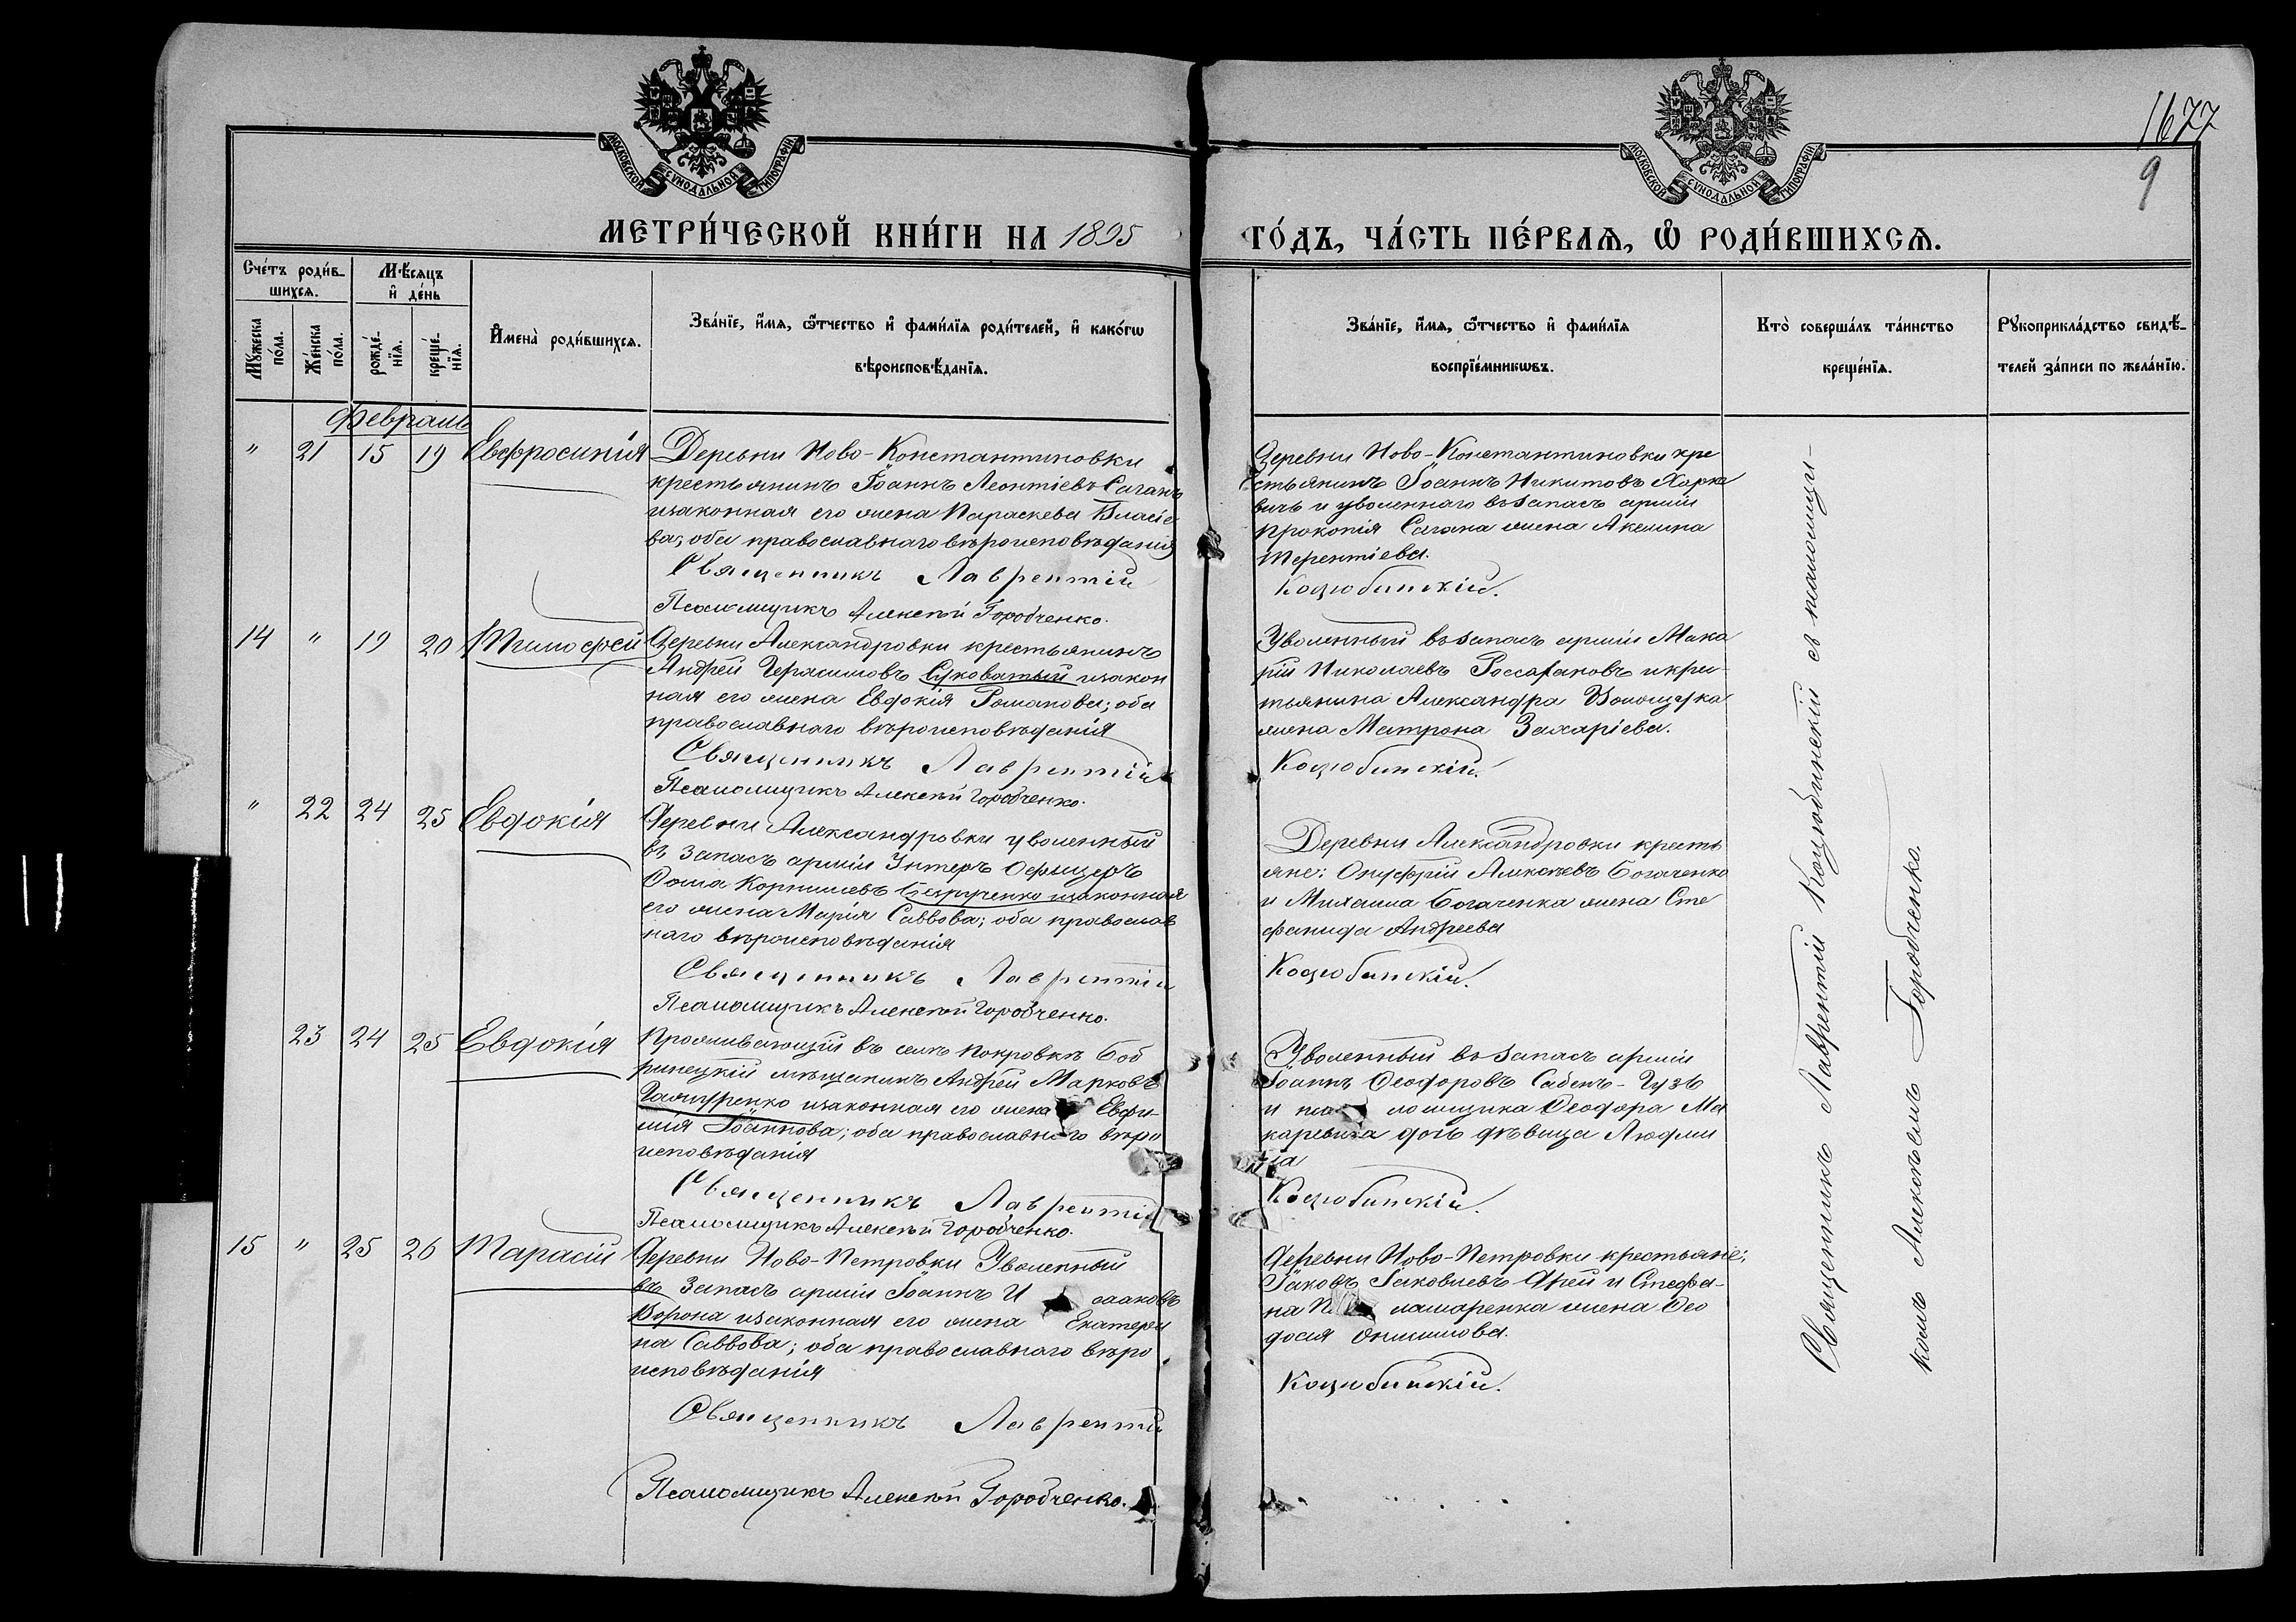 1677
9
МОСКОВСКОЙ СѴНОДАЛЬНОЙ ТИПОГРАФІИ
МОСКОВСКОЙ СѴНОДАЛЬНОЙ ТИПОГРАФІИ
МЕТРИ́ЧЕСКОЙ КНИ́ГИ НА 1895 ГО́ДЪ, ЧА́СТЬ ПЕ́РВАѦ, Ѽ РОДИ́ВШИХСѦ.
Сче́тъ роди́в-
шихсѧ.
Мѣ́сѧцъ
и҆ де́нь
Мꙋ́жеска
по́ла.
Же́нска
по́ла.
рожде́-
нїѧ.
креще́-
нїѧ.
И҆мена̀ роди́вшихсѧ.
Зва́нїе, и҆́мѧ, ѻ҆́тчество и҆ фами́лїѧ роди́телей, и҆ како́гѡ
вѣроисповѣ́данїѧ.
Зва́нїе, и҆́мѧ, ѻ҆́тчество и҆ фами́лїѧ
воспрїе́мникѡвъ.
Кто̀ соверша́лъ та́инство
креще́нїѧ.
Рꙋкоприкла́дство свидѣ́-
телей за́писи по жела́нїю.
Февраль
" 21 15 19 Евфросинія
Деревни Ново-Константиновки
крестьянинъ Іоаннъ Леонтіевъ Саганъ
изаконная его жена Параскева Власіе
ва; оба православнаго вѣроисповѣданія
Священникъ Лаврентій
Псаломщикъ Алексѣй Горобченко.
Деревни Ново-Константиновки кре
стьянинъ Іоаннъ Никитовъ Харке
вичъ и уволеннаго въ запасъ арміи
Прокопія Сагана жена Акелина
Терентіева.
Коцюбинскій.
14 " 19 20 Тимофей
Деревни Александровки крестьянинъ
Андрей Герасимовъ Суковатый изакон
ная его жена Евдокія Романова; оба
православнаго вѣроисповѣданія
Священникъ Лаврентій
Псаломщикъ Алексѣй Горобченко.
Уволенный въ запасъ арміи Мака
рій Николаевъ и крес-
тьянина Александра Волощука
жена Матрона Захаріева.
Коцюбинскій.
" 22 24 25 Евдокія
Деревни Александровки уволенный
въ запасъ арміи Унтеръ Офицеръ
Фома Корнилевъ изаконная
его жена Марія Саввова; оба православ
наго вѣроисповѣданія
Священникъ Лаврентій
Псаломщикъ Алексѣй Горобченко.
Деревни Александровки кресть
яне: Онуфрій Алексѣевъ Богаченко
и Михаила Богаченка жена Сте
фанида Андреева
Коцюбинскій.
23 24 25 Евдокія
Проживающій въ селѣ Покровкѣ Боб
ринецкій мѣщанинъ Андрей Марковъ
изаконная его жена Евфи-
мія Іоаннова; оба православнаго вѣро
исповѣданія
Священникъ Лаврентій
Псаломщикъ Алексѣй Горобченко.
Уволенный въ запасъ арміи
Іоаннъ Ѳеодоровъ
и ломщика Ѳеодора Ма
каревича дочь дѣвица Людми
ла
Коцюбинскій.
15 " 25 26 Тарасій
Деревни Ново-Петровки Уволенный
въ Запасъ арміи Іоаннъ И сааковъ
Ворона изаконная его жена Екатери
на Саввова; оба православнаго вѣро
исповѣданія
Священникъ Лаврентій
Псаломщикъ Алексѣй Горобченко.
Деревни Ново-Петровки крестьяне:
Іаковъ Іаковлевъ и Стефа-
на жена Ѳео
досия Онисимова.
Коцюбинскій.
Священникъ Лаврентій Коцюбинскій съ псаломщи-
комъ Алексѣемъ Горобченко.